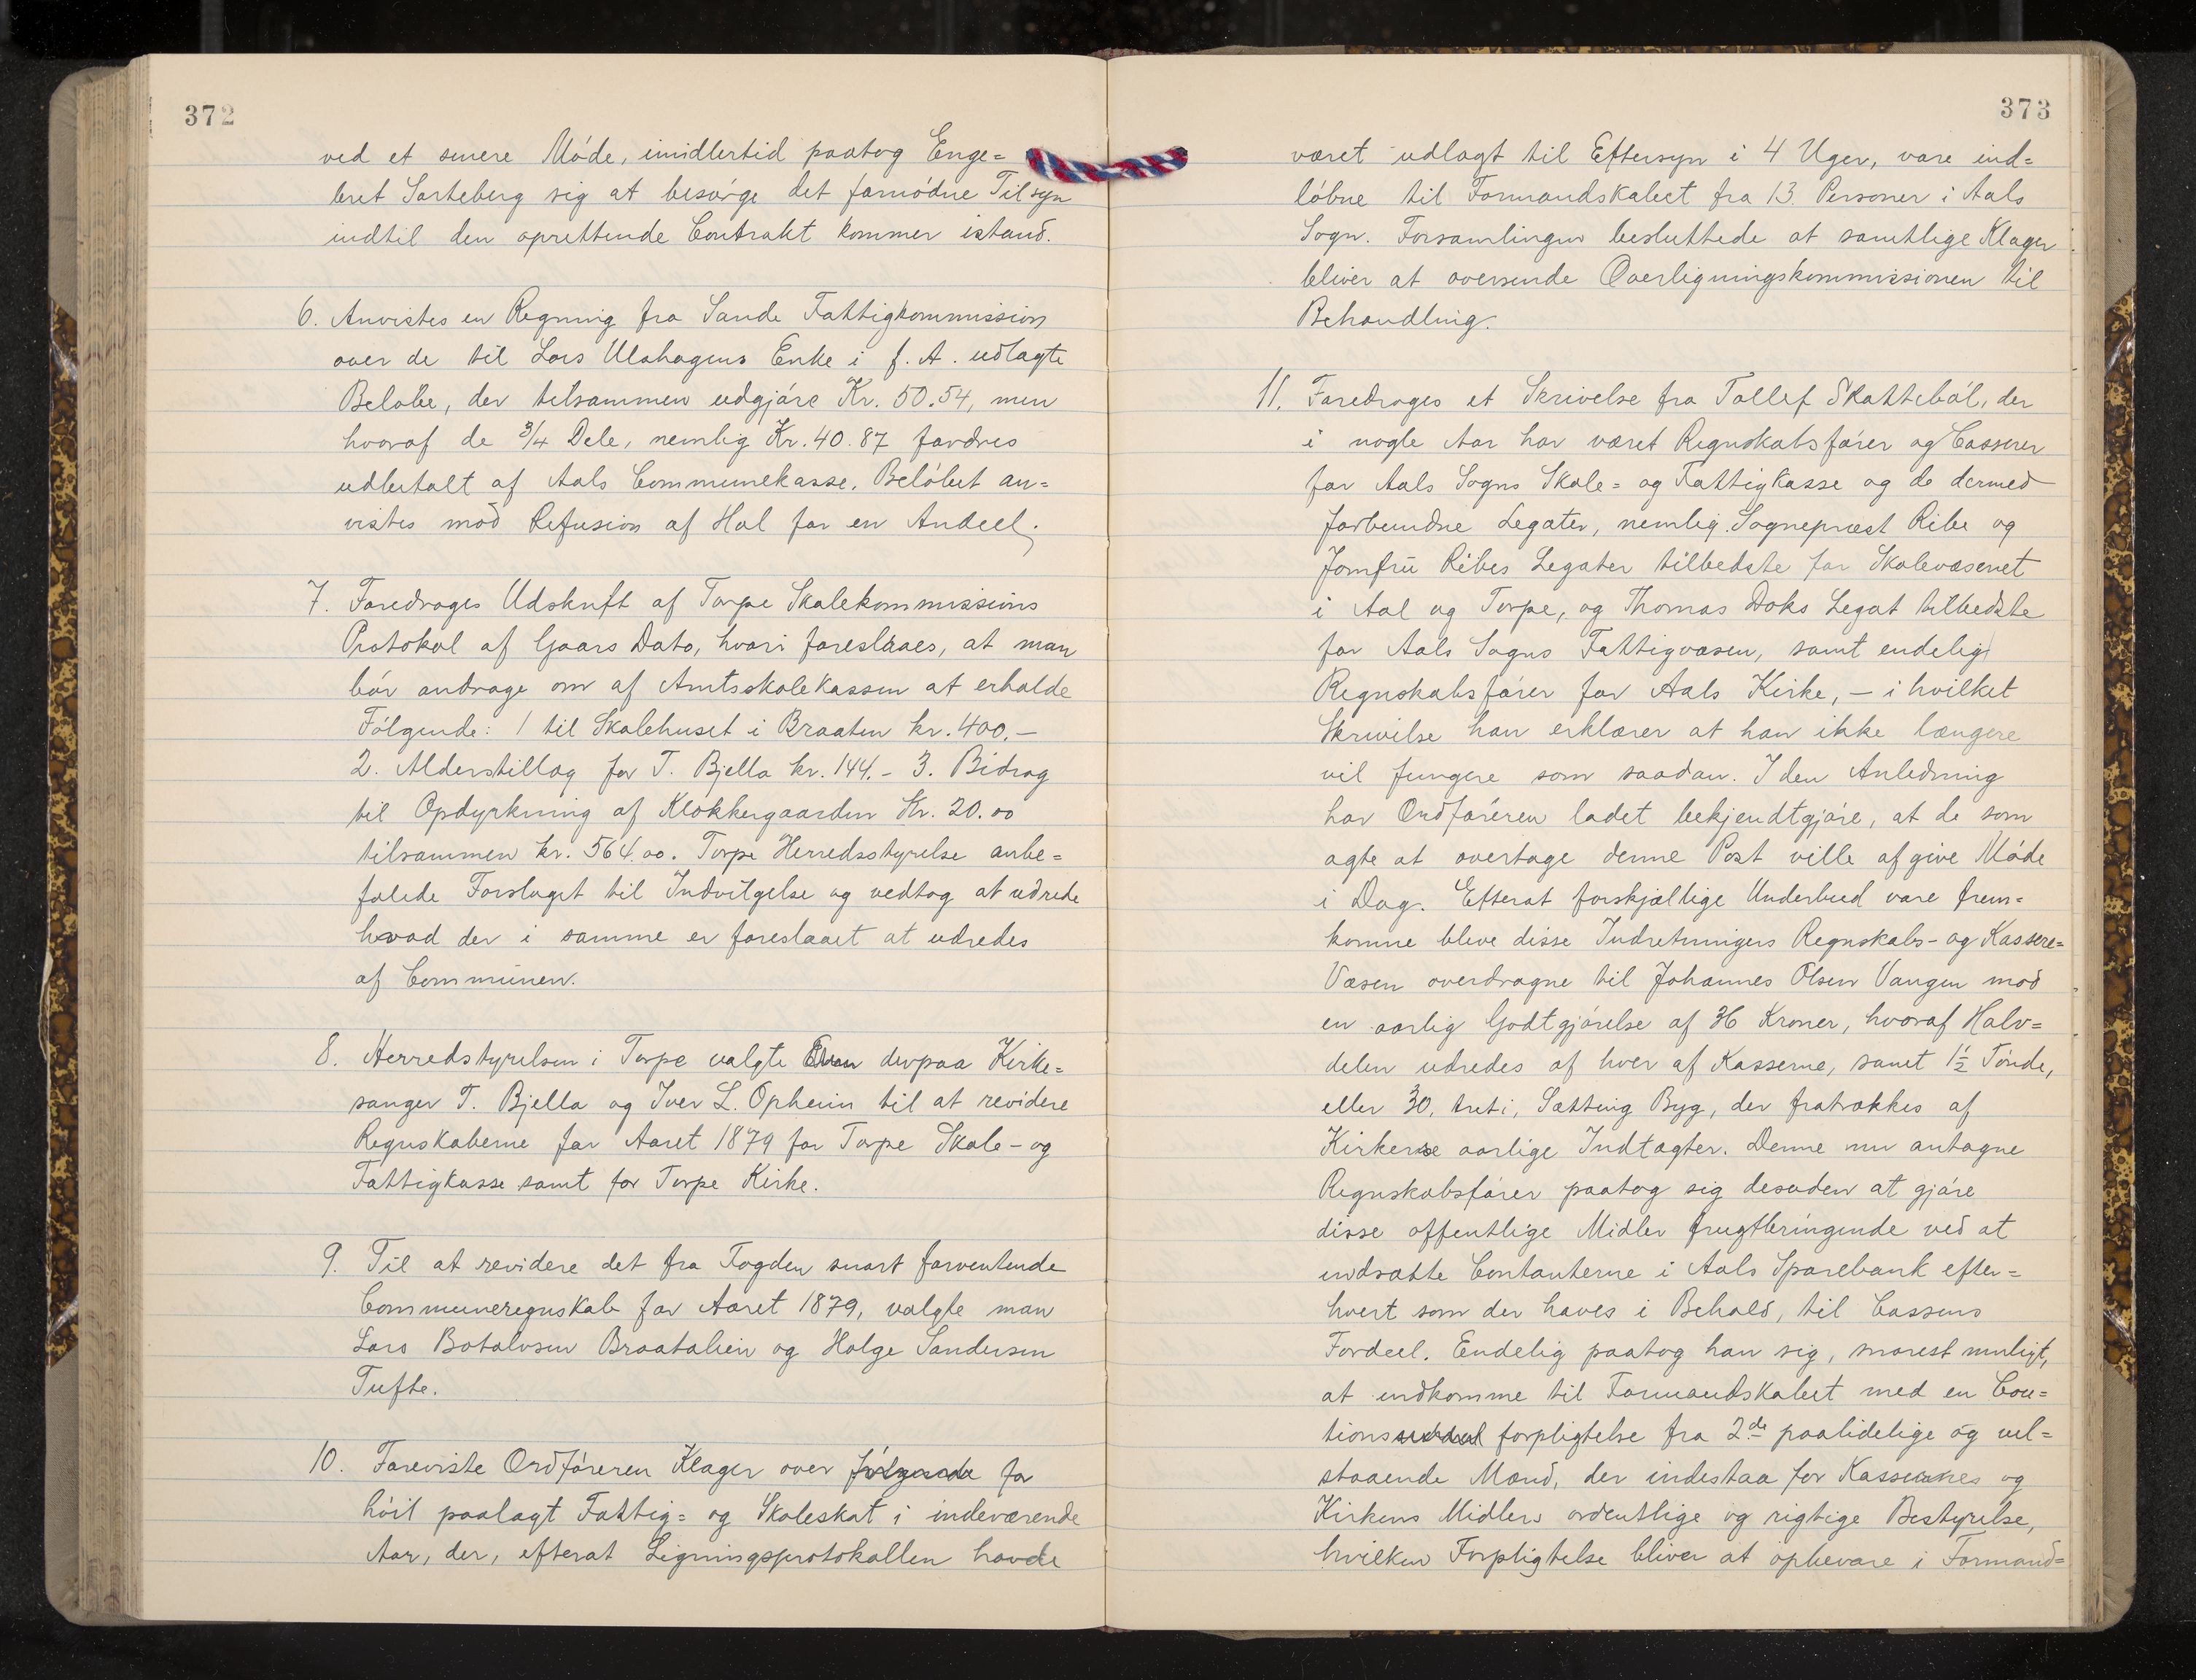 372
ved et senere Møde, imidlertid paatog Enge=
bret Sarteberg sig at besørge det fornødne Tilsyn
indtil den oprettende Contrakt kommer istand.
6. Anvistes en Regning fra Sande Fattigkommission
over de til Lars Ulahagens Enke i f. A. udlagte
Beløbe, der tilsammen udgjøre Kr. 50.54, men
hvoraf de 3/4 Dele, nemlig Kr. 40.87 fordres
udbetalt af Aals Communekasse. Beløbet an=
vistes mod Refusion af Hol for en Andeel.
7. Foredroges Udskrift af Torpe Skolekommissions
Protokol af Gaars Dato, hvori foreslaaes, at man
bør andrage om af Amtsskolekassen at erholde
Følgende: 1 til Skolehuset i Braaten kr. 400.—
2. Alderstillæg for T. Bjella kr. 144.- 3. Bidrag
til Opdyrkning af Klokkergaarden Kr. 20.00
tilsammen kr. 564.00. Torpe Herredsstyrelse anbe=
falede Forslaget til Indvilgelse og vedtog at udrede
hvad der i samme er foreslaaet at udredes
af Communen.
8. Herredstyrelsen i Torpe valgte derpaa Kirke=
sanger T. Bjella og Iver L. Opheim til at revidere
Regnskaberne for Aaret 1879 for Torpe Skole- og
Fattigkasse samt for Torpe Kirke.
9. Til at revidere det fra Fogden snart forventende
Communeregnskab for Aaret 1879, valgte man
Lars Botolvsen Braatalien og Holge Sandersen
Tufte.
10. Foreviste Ordføreren Klager over følgende for
høit paalagt Fattig= og Skoleskat i indeværende
Aar, der, efterat Ligningsprotokollen havde
373
været udlagt til Eftersyn i 4 Uger, vare ind=
løbne til Formandskabet fra 13. Personer i Aals
Sogn. Forsamlingen besluttede at samtlige Klager
bliver at oversende Overligningskommissionen til
Behandling.
11. Foredroges et Skrivelse fra Tollef Skattebøl, der
i nogle Aar har været Regnskabsfører og Casserer
for Aals Sogns Skole= og Fattigkasse og de dermed
forbundne Legater, nemlig Sognepræst Ribe og
Jomfru Ribes Legater tilbedste for Skolevæsenet
i Aal og Torpe, og Thomas Doks Legat tilbedste
for Aals Sogns Fattigvæsen, samt endelig
Regnskabsfører for Aals Kirke, — i hvilket
Skrivelse han erklærer at han ikke længere
vil fungere som saadan. I den Anledning
har Ordføreren ladet bekjendtgjøre, at de som
agte at overtage denne Post ville afgive Møde
i Dag. Efterat forskjællige Underbud vare frem=
komne bleve disse Indretningers Regnskabs- og Kassere=
Væsen overdragne til Johannes Olsen Vangen mod
en aarlig Godtgjørelse af 36 Kroner, hvoraf Halv=
delen udredes af hver af Kasserne, samt 1½ Tønde,
eller 30, treti, Sætting Byg, der fratrækkes af
Kirkens aarlige Indtægter. Denne nu antagne
Regnskabsfører paatog sig desuden at gjøre
disse offentlige Midler frugtbringende ved at
indsætte Contanterne i Aals Sparebank efter=
hvert som der haves i Behold, til Cassens
Fordeel. Endelig paatog han sig, snarest muligt,
at indkomme til Formandskabet med en Cau=
tions forpligtelse fra 2de paalidelige og vel=
staaende Mænd, der indestaa for Kassernes og
Kirkens Midlers ordentlige og rigtige Bestyrelse,
hvilken Forpligtelse bliver at opbevare i Formand=